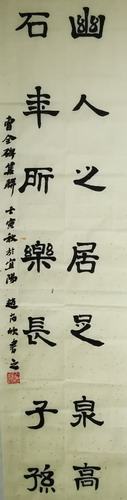 幽人之居足泉高
石年所樂長子孫
曹全碑集聯 壬寅秋於宜陽 趙 欣書之